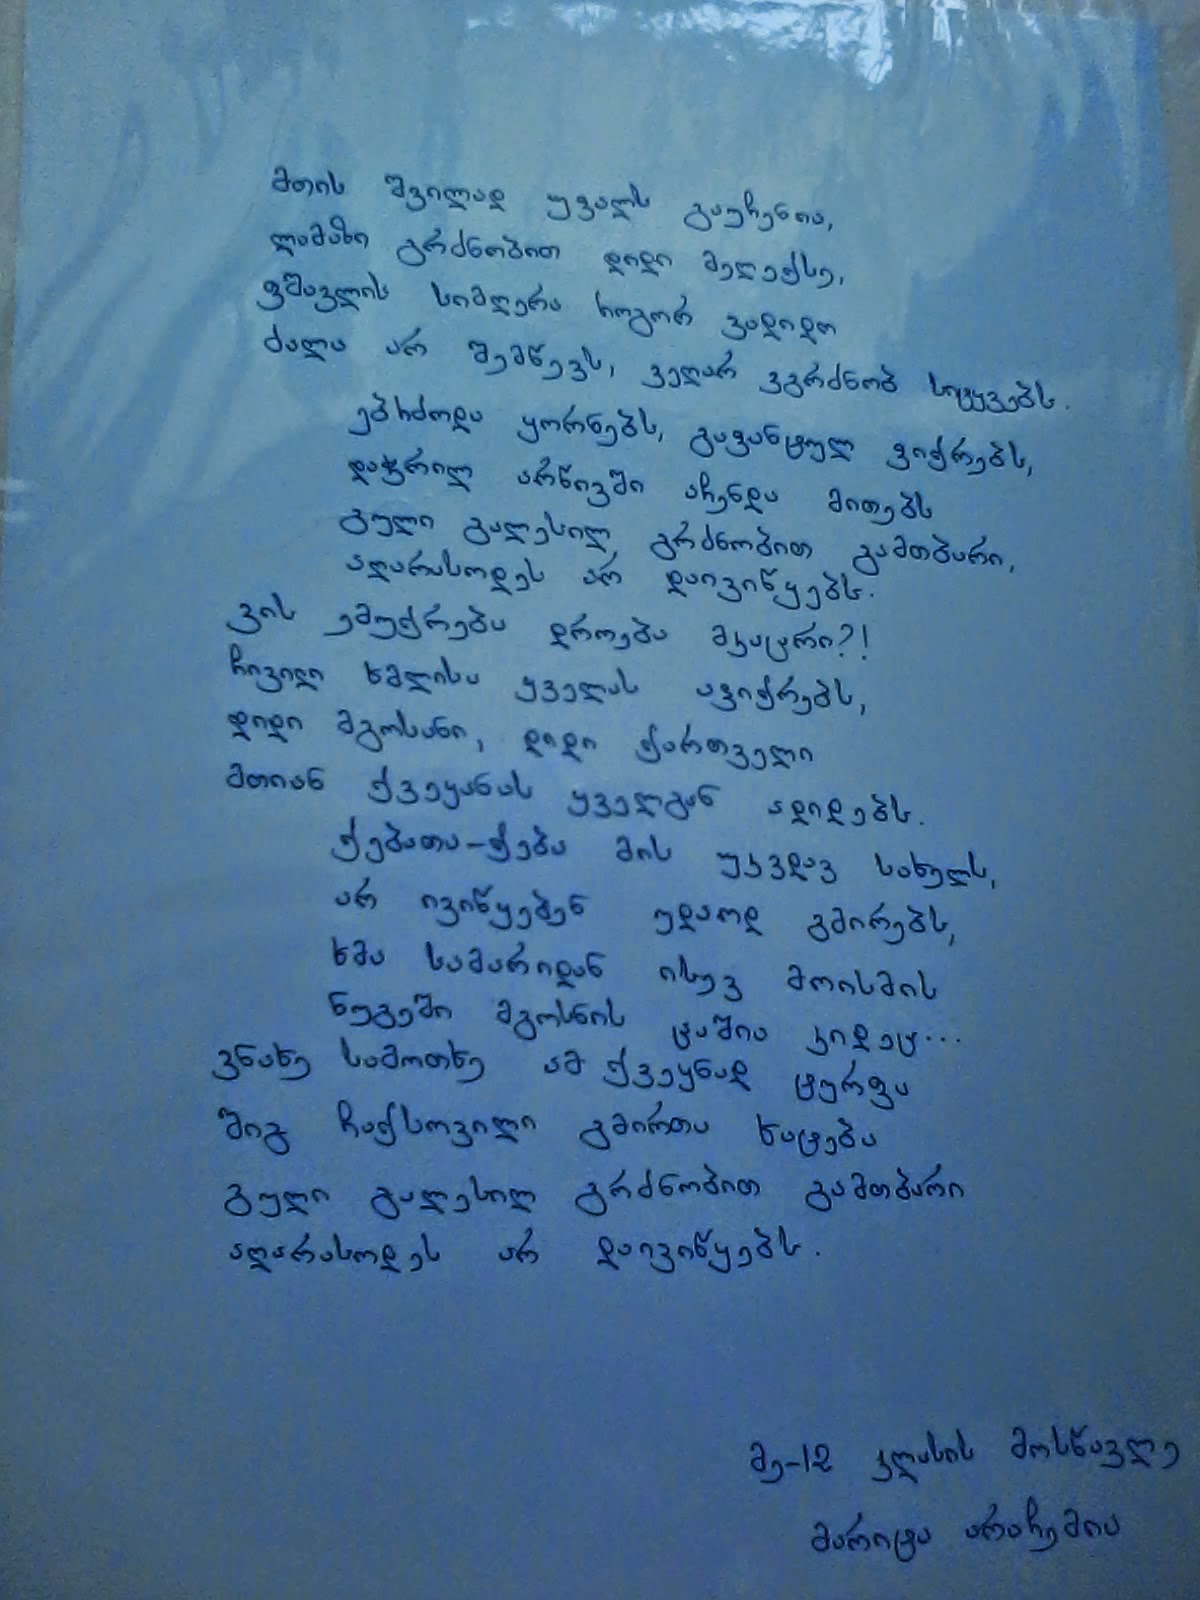 მთის შვილად უფალს გაუჩენია,
ლამაზი გრძნობით დიდი მელექსე,
ფშავლის სიმღერა როგორ ვადიდო
ძალა არ შემწევს, ვეღარ ვგრძნობ სიტყვებს.
ებრძოდა ყორნებს, გაფანტულ ფიქრებს,
დაჭრილ არწივში აჩენდა მითებს
გული გალესილ, გრძნობით გამთბარი,
აღარასოდეს არ დაივიწყებს.
ვის ემუქრება დროება მკაცრი?!
ჩივილი ხმლისა ყველას აფიქრებს,
დიდი მგოსანი, დიდი ქართველი
მთიან ქვეყანას ყველგან ადიდებს.
ქებათა-ქება მის უკვდავ სახელს,
არ ივიწყებენ უდაოდ გმირებს,
ხმა სამარიდან ისევ მოისმის
ნუგეში მგოსნის ცაშია კიდეც...
ვნახე სამოთხე ამ ქვეყნად ტურფა
შიგ ჩაქსოვილი გმირთა ხატება
გული გალესილ გრძნობით გამთბარი
აღარასოდეს არ დაივიწყებს.
მე-12 კლასის მოსწავლე
მარიტა არაჩემია